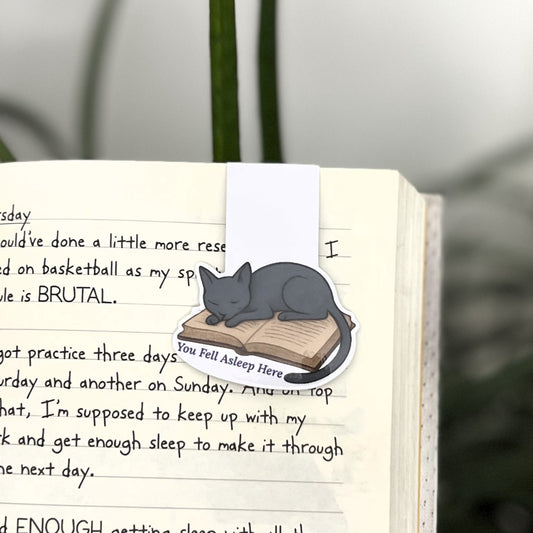 sday
ould've done a little more rese I
ed on basketball as my sp
ule is BRUTAL.
got practice three days
urday and another on Sunday. And on top
hat, I'm supposed to keep up with my
k and get enough sleep to make it through
he next day.
d ENOUGH getting sleep with all th
You Fell Asleep Here